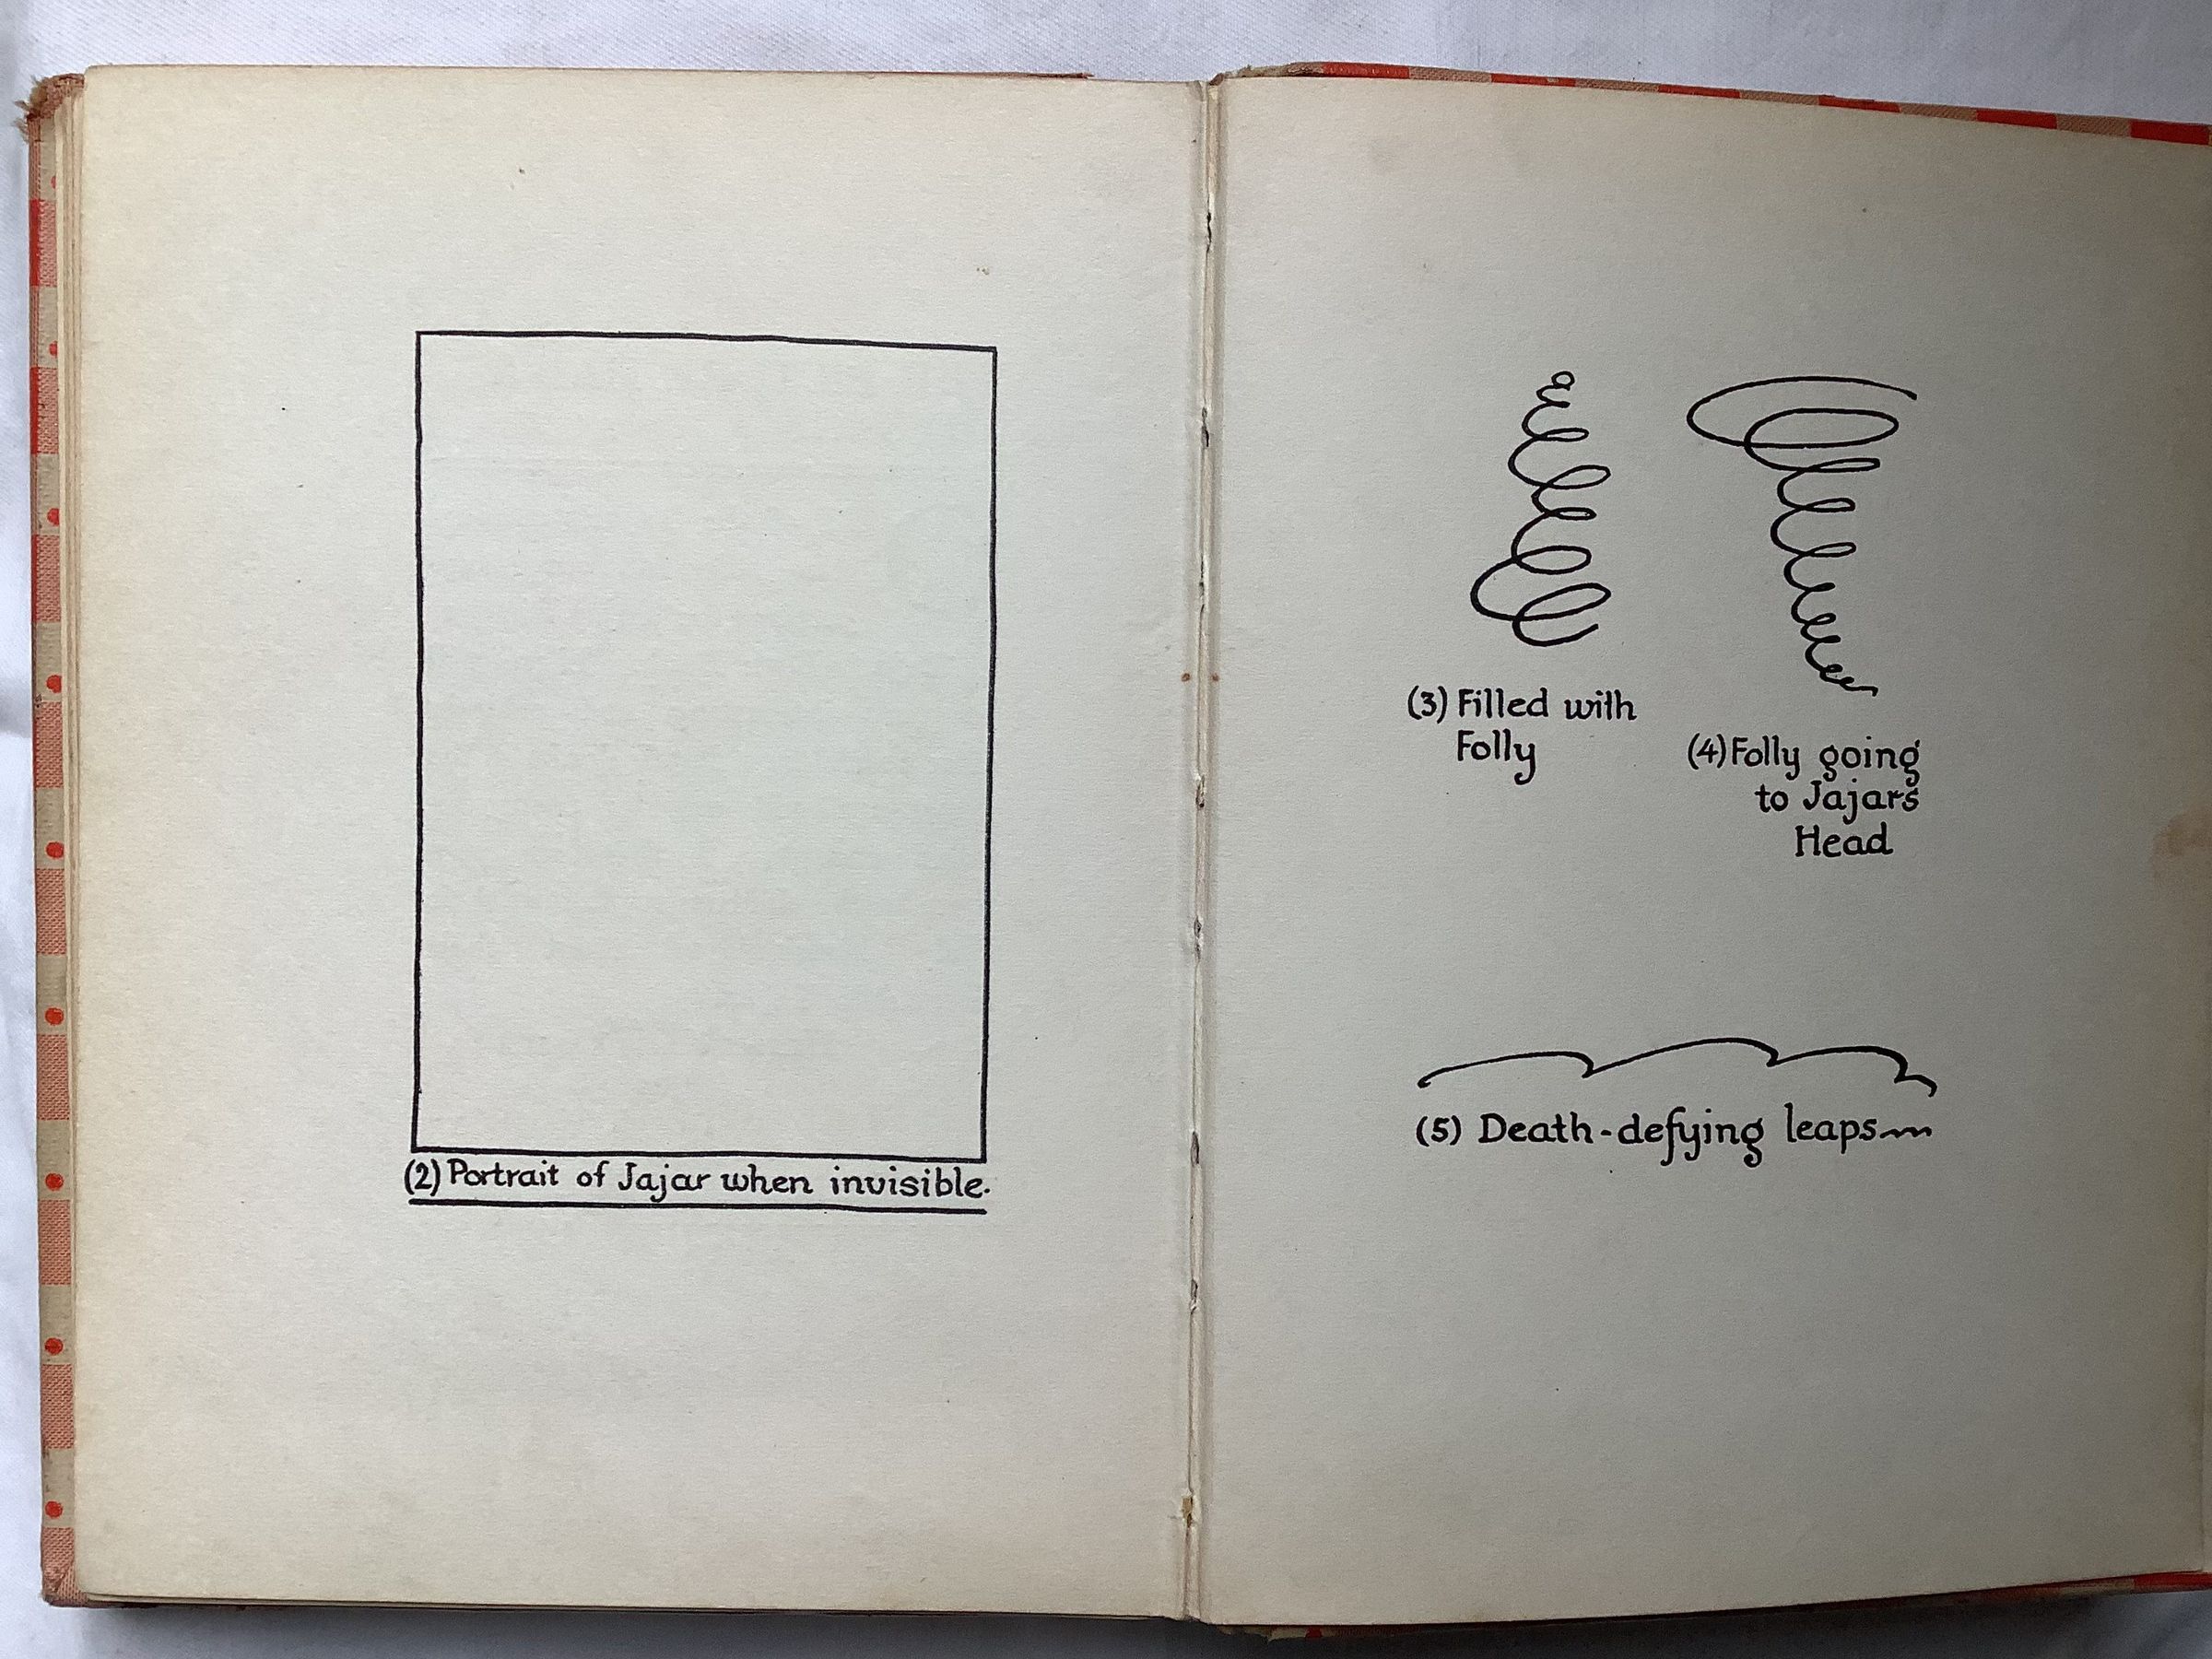 (2) Portrait of Jajar when invisible.
(3) Filled with
Folly
(4) Folly going
to Jajars
Head
(5) Death-defying leaps